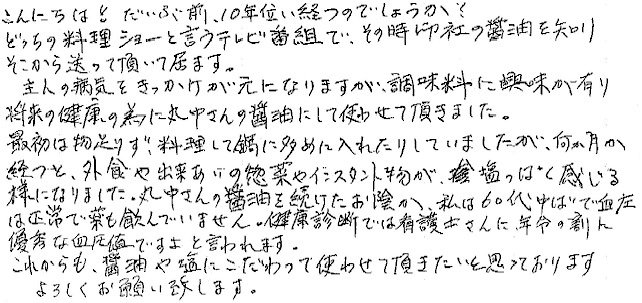 こんにちは！だいぶ前、10年位い経つのでしょうか？
どっちの料理ショーと言うテレビ番組で、その時御社の醤油を知り
そこから送って頂いて居ます。
主人の病気をきっかけが元になりますが、調味料に興味が有り
将来の健康の為に丸中さんの醤油にして使わせて頂きました。
最初は物足りず、料理して鍋に多めに入れたりしていましたが、何か月か
経つと、外食や出来あいの惣菜やインスタント物が、塩っぱく感じる
様になりました。丸中さんの醤油を続けたお陰か、私は60代中ばで血圧
は正常で薬も飲んでいません。健康診断では看護士さんに、年令の割に
優秀な血圧値ですよと言われます。
これからも、醤油や塩にこだわって使わせて頂きたいと思っております
よろしくお願い致します。